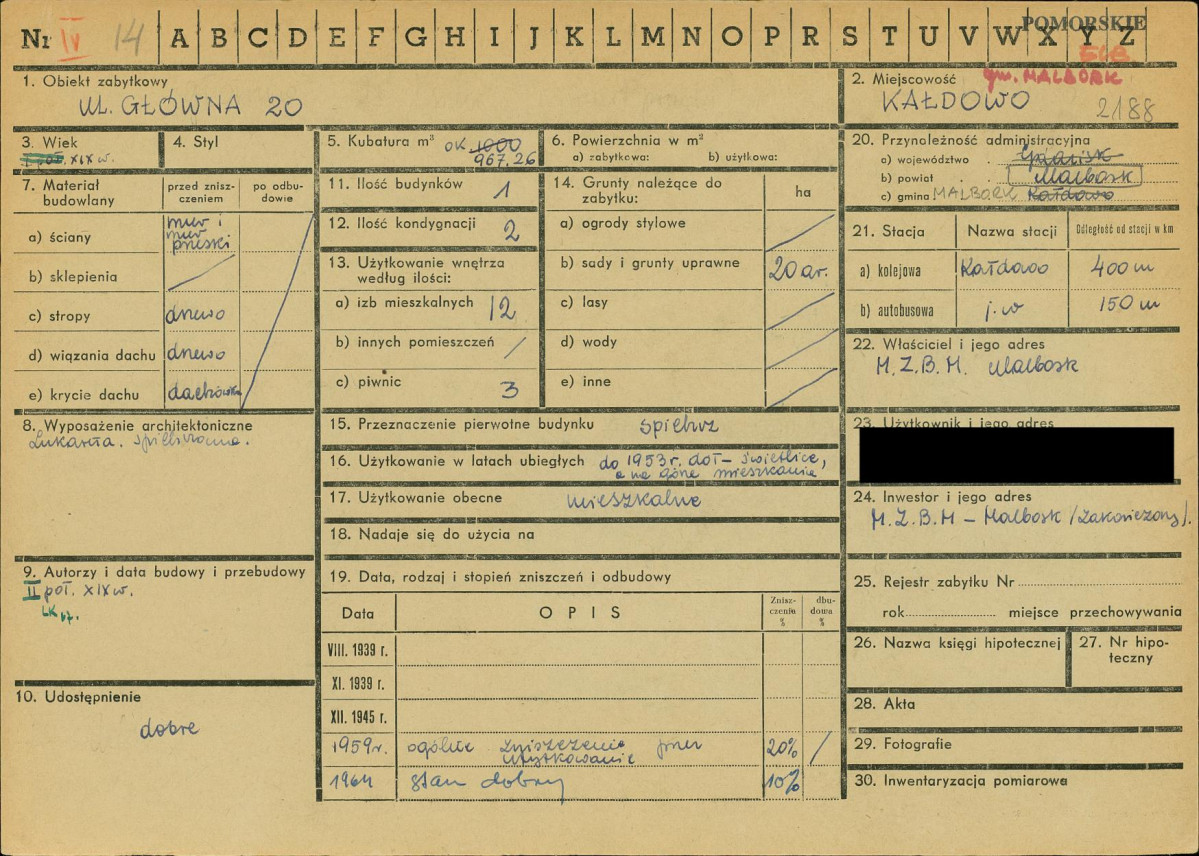 Nr IV 14 A B C D E F G H I J K L M N O P R S T U V W X Y Z
POMORSKIE
ELB
1. Obiekt zabytkowy
UL. GŁÓWNA 20
2. Miejscowość gm. MALBORK
KAŁDOWO 2188
3. Wiek
I poł. XIX w.
4. Styl
5. Kubatura m³ ok 1000
967.26
6. Powierzchnia w m²
a) zabytkowa: b) użytkowa:
7. Materiał budowlany
przed zniszczeniem
po odbudowie
a) ściany mur i mur pruski
b) sklepienia
c) stropy drewno
d) wiązania dachu drewno
e) krycie dachu dachówka
8. Wyposażenie architektoniczne
Lukarna.
9. Autorzy i data budowy i przebudowy
II poł. XIX w.
10. Udostępnienie
dobre
11. Ilość budynków 1
12. Ilość kondygnacji 2
13. Użytkowanie wnętrza
według ilości:
a) izb mieszkalnych 12
b) innych pomieszczeń /
c) piwnic 3
14. Grunty należące do
zabytku:
ha
a) ogrody stylowe
b) sady i grunty uprawne 20 ar.
c) lasy
d) wody
e) inne
15. Przeznaczenie pierwotne budynku spichrz
16. Użytkowanie w latach ubiegłych do 1953 r. dół – świetlice,
a na górze mieszkania
17. Użytkowanie obecne mieszkalne
18. Nadaje się do użycia na
19. Data, rodzaj i stopień zniszczeń i odbudowy
Data OPIS Zniszczenia % dbudowa %
VIII. 1939 r.
XI. 1939 r.
XII. 1945 r.
1959 r. ogólne zniszczenie przez
użytkowanie 20% /
1964 stan dobry 10%
20. Przynależność administracyjna
a) województwo Gdańsk
b) powiat Malbork
c) gmina MALBORK Kałdowo
21. Stacja Nazwa stacji Odległość od stacji w km
a) kolejowa Kałdowo 400 m
b) autobusowa j.w 150 m
22. Właściciel i jego adres
M.Z.B.M. Malbork
23. Użytkownik i jego adres
24. Inwestor i jego adres
M.Z.B.M – Malbork /zakończony/.
25. Rejestr zabytku Nr
rok miejsce przechowywania
26. Nazwa księgi hipotecznej
27. Nr hipoteczny
28. Akta
29. Fotografie
30. Inwentaryzacja pomiarowa